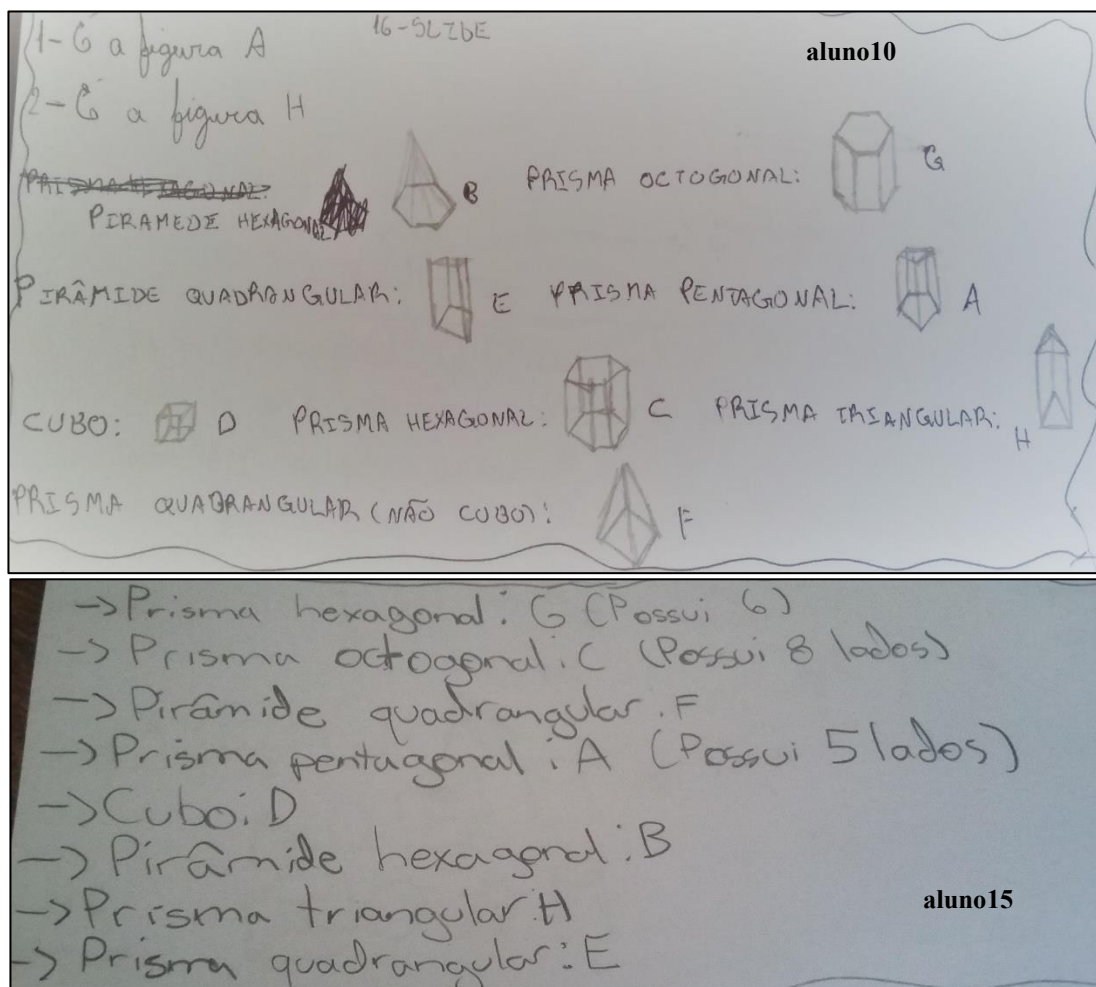 1-É a figura A
16-SLIDE
aluno10
2-É a figura H
PIRAMEDE HEXAGONAL
B
PRISMA OCTOGONAL:
G
PIRÂMIDE QUADRANGULAR:
E
PRISMA PENTAGONAL:
A
CUBO:
D
PRISMA HEXAGONAL:
C
PRISMA TRIANGULAR:
H
PRISMA QUADRANGULAR (NÃO CUBO):
F
->Prisma hexagonal: G (Possui 6)
-> Prisma octogonal: C (Possui 8 lados)
-> Pirâmide quadrangular: F
-> Prisma pentagonal: A (Possui 5 lados)
-> Cubo: D
-> Pirâmide hexagonal: B
-> Prisma triangular: H
-> Prisma quadrangular: E
aluno15